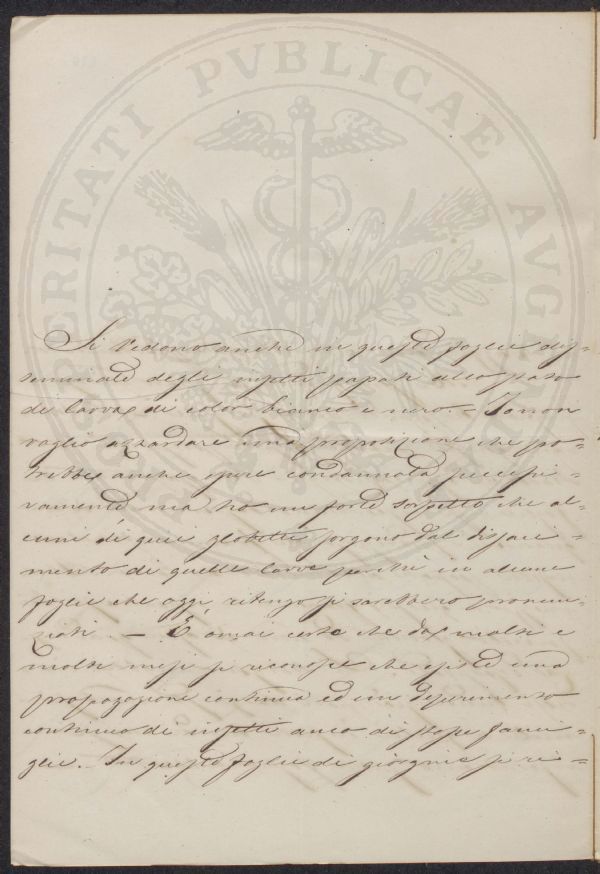 PROSPERITATI PVBLICAE AVGENDAE
Si vedono anche in queste foglie dis=
seminate degli insetti passati allo stato
di larva di color bianco e nero. - Io non
voglio azzardare una proposizione che po=
trebbe anche essere condannata
ma ho un forte sospetto che al=
cuni di quei globetti sorgono dal disfaci=
mento di quelle larve perché in alcune
foglie che oggi ritengo si sarebbero pronun=
ziati. - È omai certo che da molti e
molti mesi si riconosce che esiste una
propagazione continua ed un deperimento
continuo di insetti anco di stesse fami=
glie. - In queste foglie di giorgine si ri=